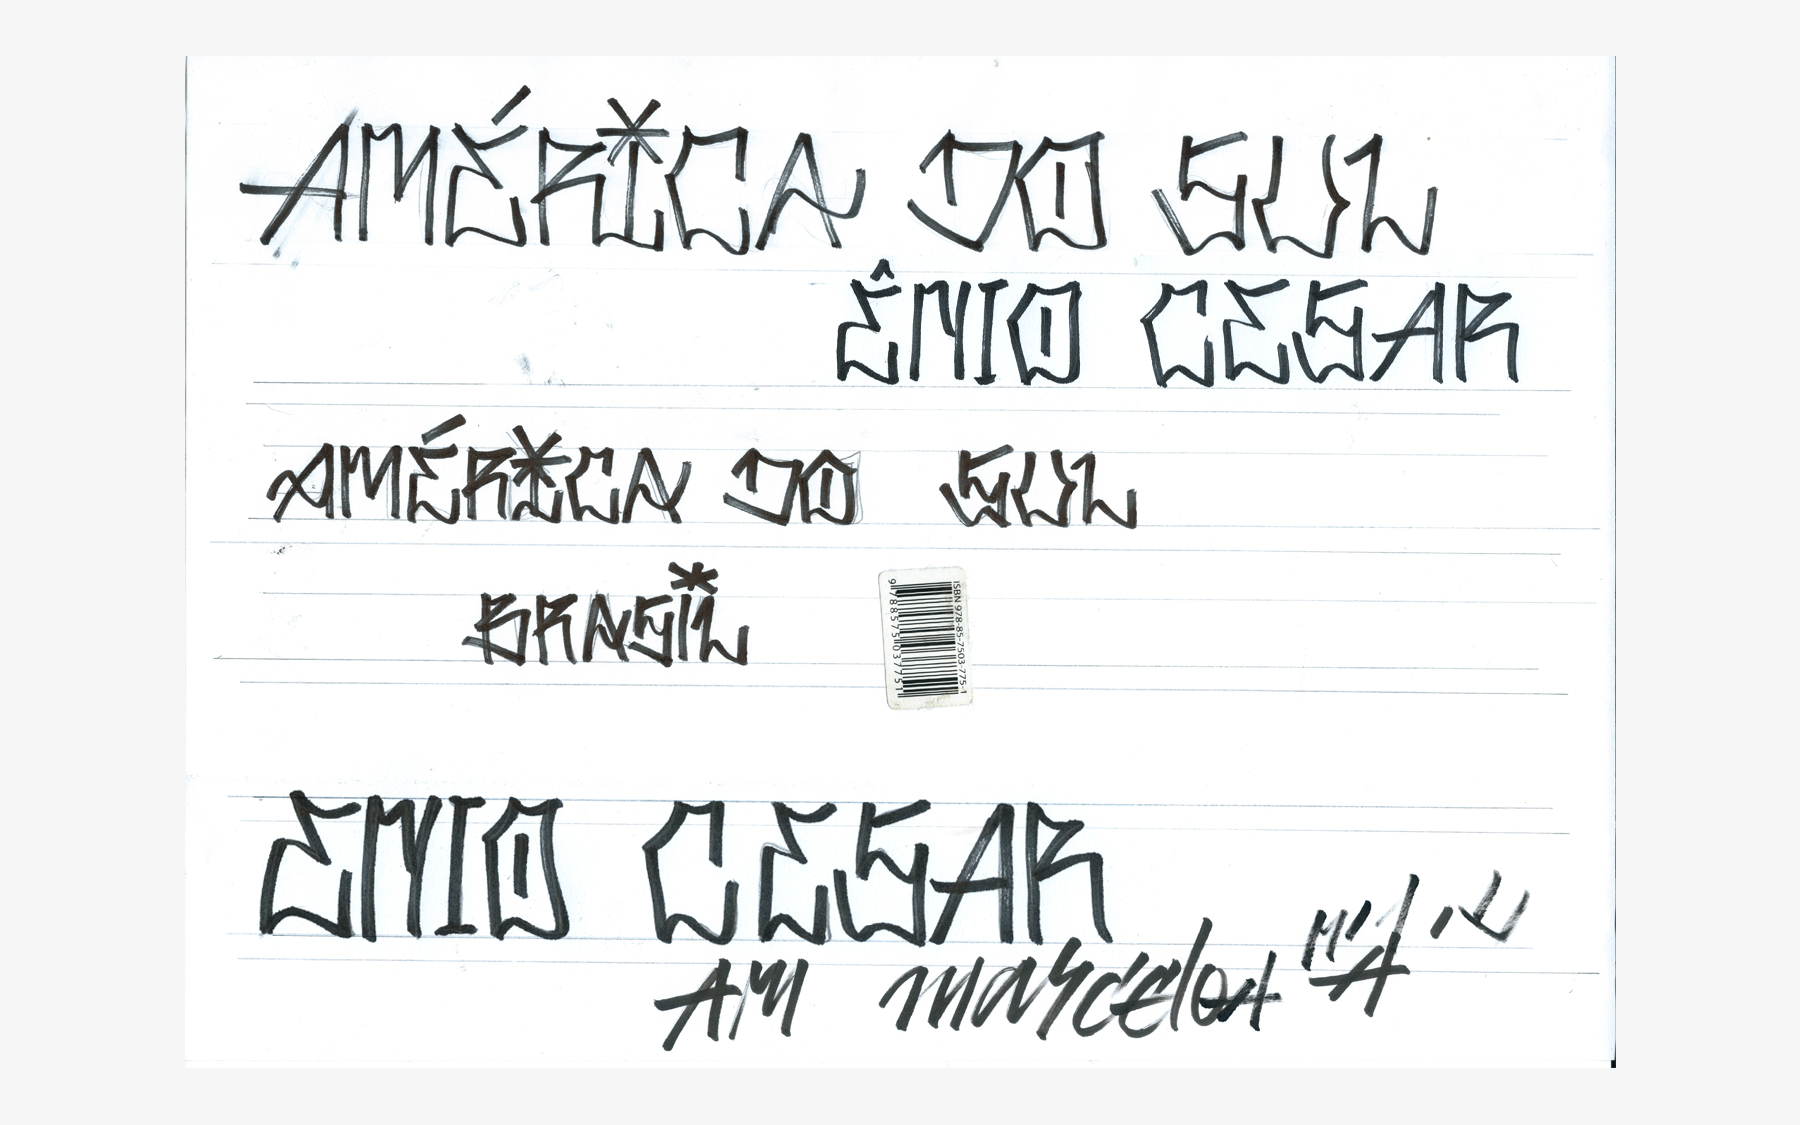 AMÉRICA DO SUL
ÊNIO CESAR
AMÉRICA DO SUL
BRASIL
ISBN 978-85-7503-775-1
9 788575 037751
ENIO CESAR
AM marcelo